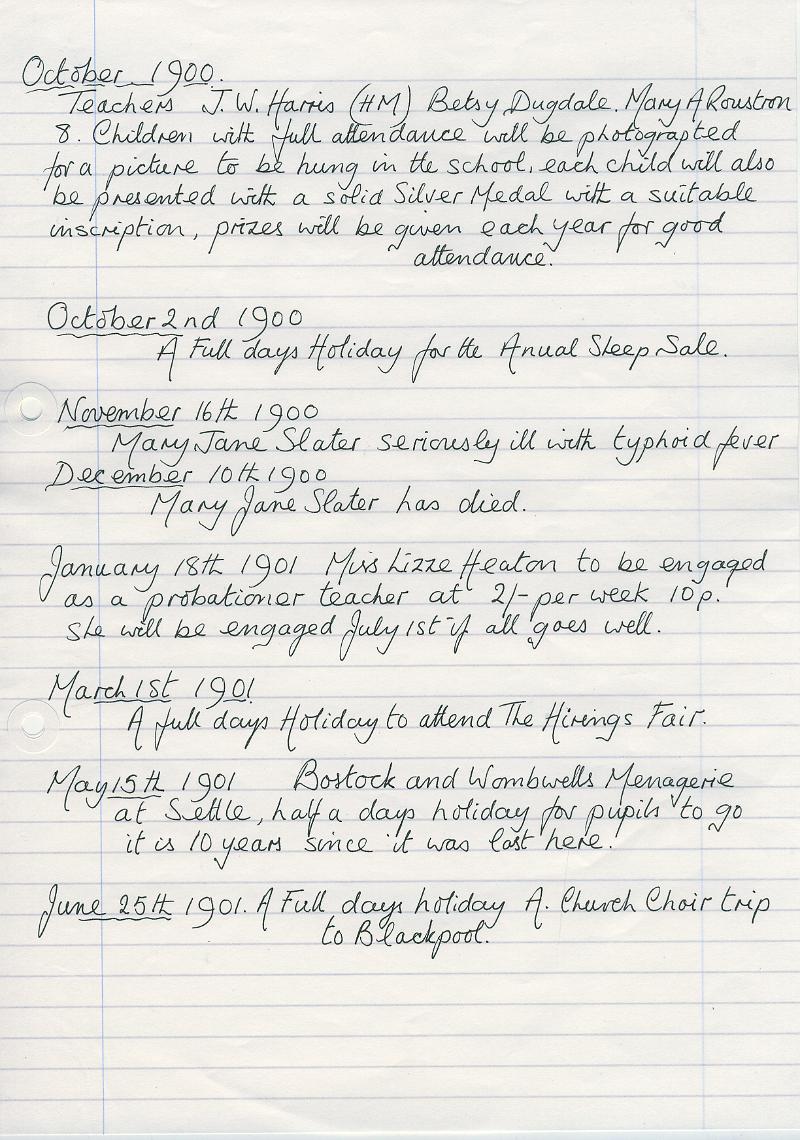 October 1900.
Teachers J.W. Harris (HM) Betsy Dugdale. Mary A Roustron
8. Children with full attendance will be photograpted
for a picture to be hung in the school, each child will also
be presented with a solid Silver Medal with a suitable
inscription, prizes will be given each year for good
attendance.
October 2nd 1900
A Full days Holiday for the Anual Sheep Sale.
November 16th 1900
Mary Jane Slater seriously ill with typhoid fever
December 10th 1900
Mary Jane Slater has died.
January 18th 1901 Miss Lizze Heaton to be engaged
as a probationer teacher at 2/- per week 10p.
She will be engaged July 1st if all goes well.
March 1st 1901
A full days Holiday to attend The Hirings Fair.
May 15th 1901 Bostock and Wombwells Menagerie
at Settle, half a days holiday for pupils to go
it is 10 years since it was last here.
June 25th 1901. A Full days holiday A. Church Choir trip
to Blackpool.